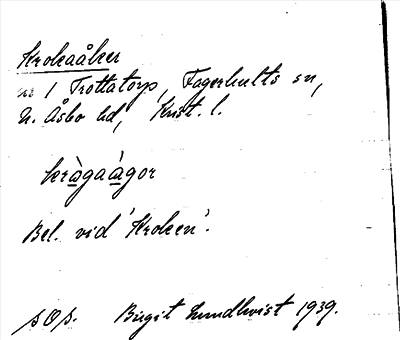 Krokaåker
nr 1 Trottatorp, Fagerhults sn,
N. Åsbo hd, Krist. l.
kràgaàgor
Bel. vid 'Kroken'.
sOs. Birgit Lundkvist 1939.